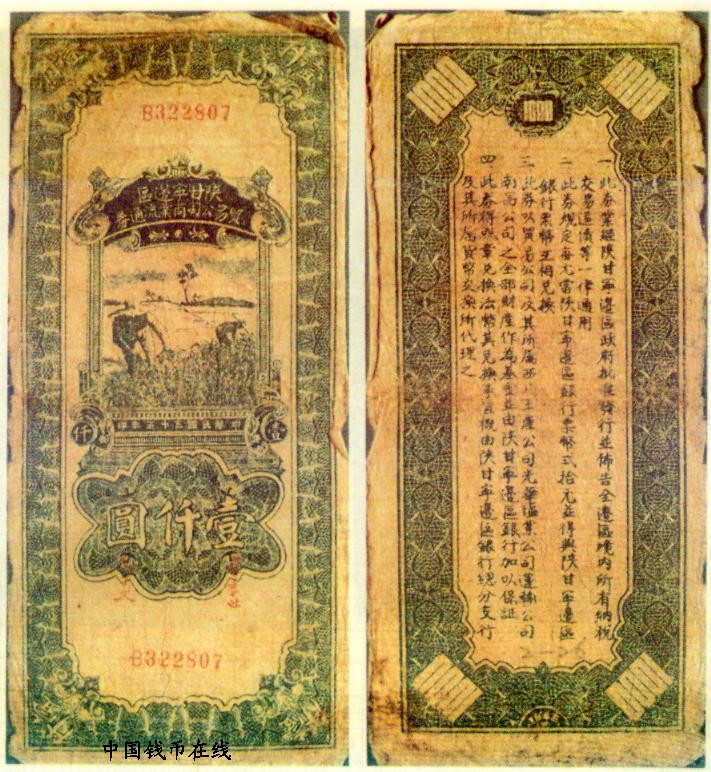 B322807
陕甘寧邊區
貿易公司商業流通券
中華民國三十六年印
仟
壹
壹仟圓
B322807
中国钱币在线
一 此券業經陝甘寧邊區政府批准發行並佈告全邊區境內所有納稅
交易還債等一律通用
二 此券規定每元當陝甘寧邊區銀行票幣弍拾元並得與陝甘寧邊區
銀行票幣互相兌換
三 此券以貿易公司及其所屬西 土產公司光華鹽業公司運輸公司
南昌公司之全部財產作為基金並由陝甘寧邊區銀行加以保証
四 此券得 章兌換法幣其兌換事宜概由陝甘寧邊區銀行總分支行
及其所屬貨幣交換所代理之